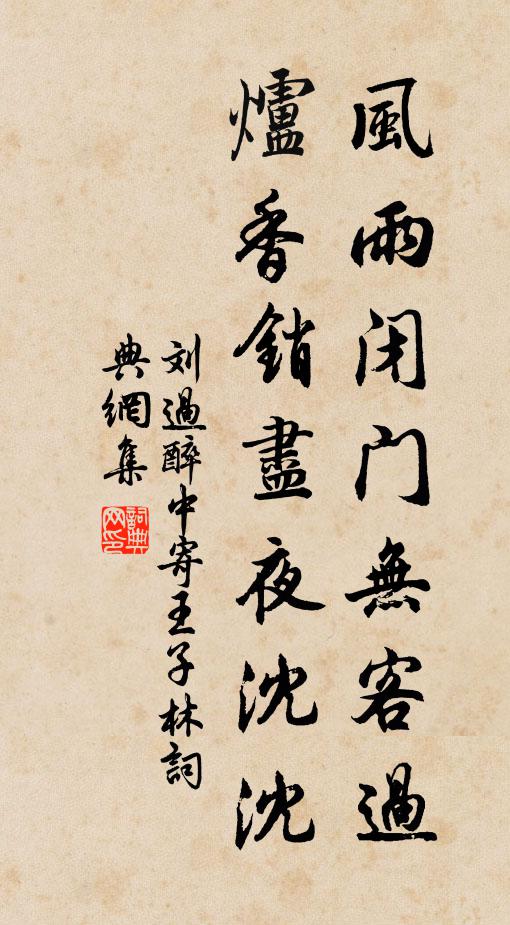 風雨闭门無客過
爐香銷盡夜沈沈
刘過醉中寄王子林詞
典網集
詞典网印